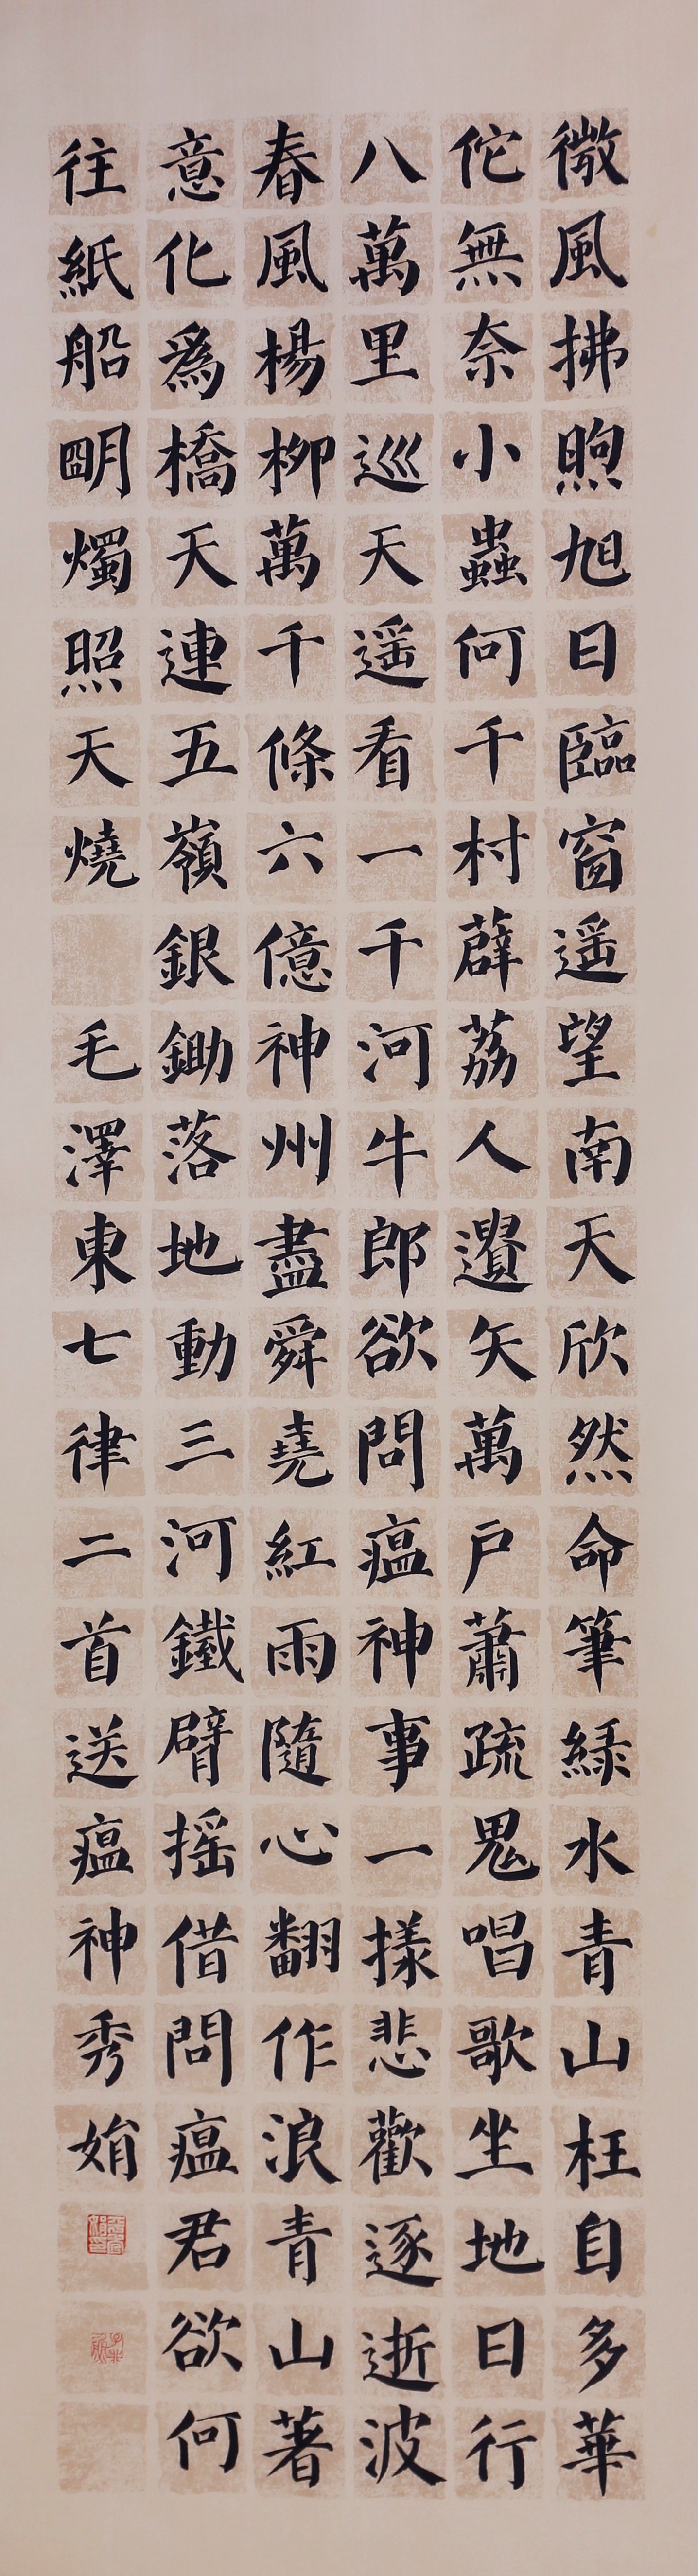 微風拂煦旭日臨窗遥望南天欣然命筆緑水青山枉自多華
佗無奈小蟲何千村薜荔人遺矢萬户蕭疏鬼唱歌坐地日行
八萬里巡天遥看一千河牛郎欲問瘟神事一樣悲歡逐逝波
春風楊柳萬千條六億神州盡舜堯紅雨隨心翻作浪青山著
意化爲橋天連五嶺銀鋤落地動三河鐵臂摇借問瘟君欲何
往紙船朙燭照天燒 毛澤東七律二首送瘟神秀娟